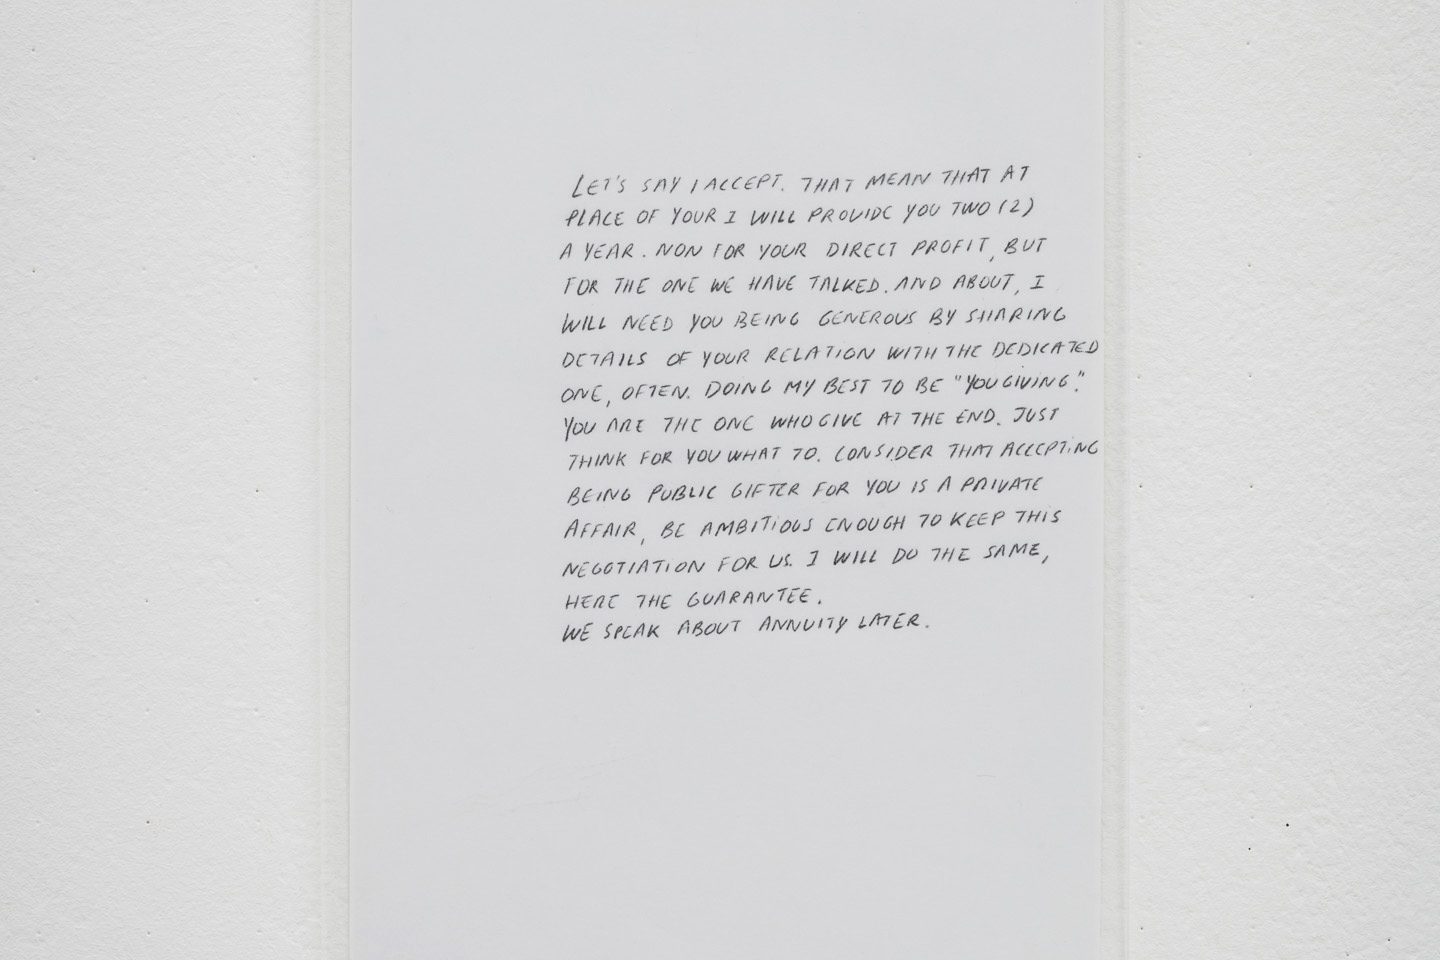 LET'S SAY I ACCEPT. THAT MEAN THAT AT
PLACE OF YOUR I WILL PROVIDE YOU TWO (2)
A YEAR. NON FOR YOUR DIRECT PROFIT, BUT
FOR THE ONE WE HAVE TALKED. AND ABOUT, I
WILL NEED YOU BEING GENEROUS BY SHARING
DETAILS OF YOUR RELATION WITH THE DEDICATED
ONE, OFTEN. DOING MY BEST TO BE "YOU GIVING".
YOU ARE THE ONE WHO GIVE AT THE END. JUST
THINK FOR YOU WHAT TO. CONSIDER THAT ACCEPTING
BEING PUBLIC GIFTER FOR YOU IS A PRIVATE
AFFAIR, BE AMBITIOUS ENOUGH TO KEEP THIS
NEGOTIATION FOR US. I WILL DO THE SAME,
HERE THE GUARANTEE.
WE SPEAK ABOUT ANNUITY LATER.